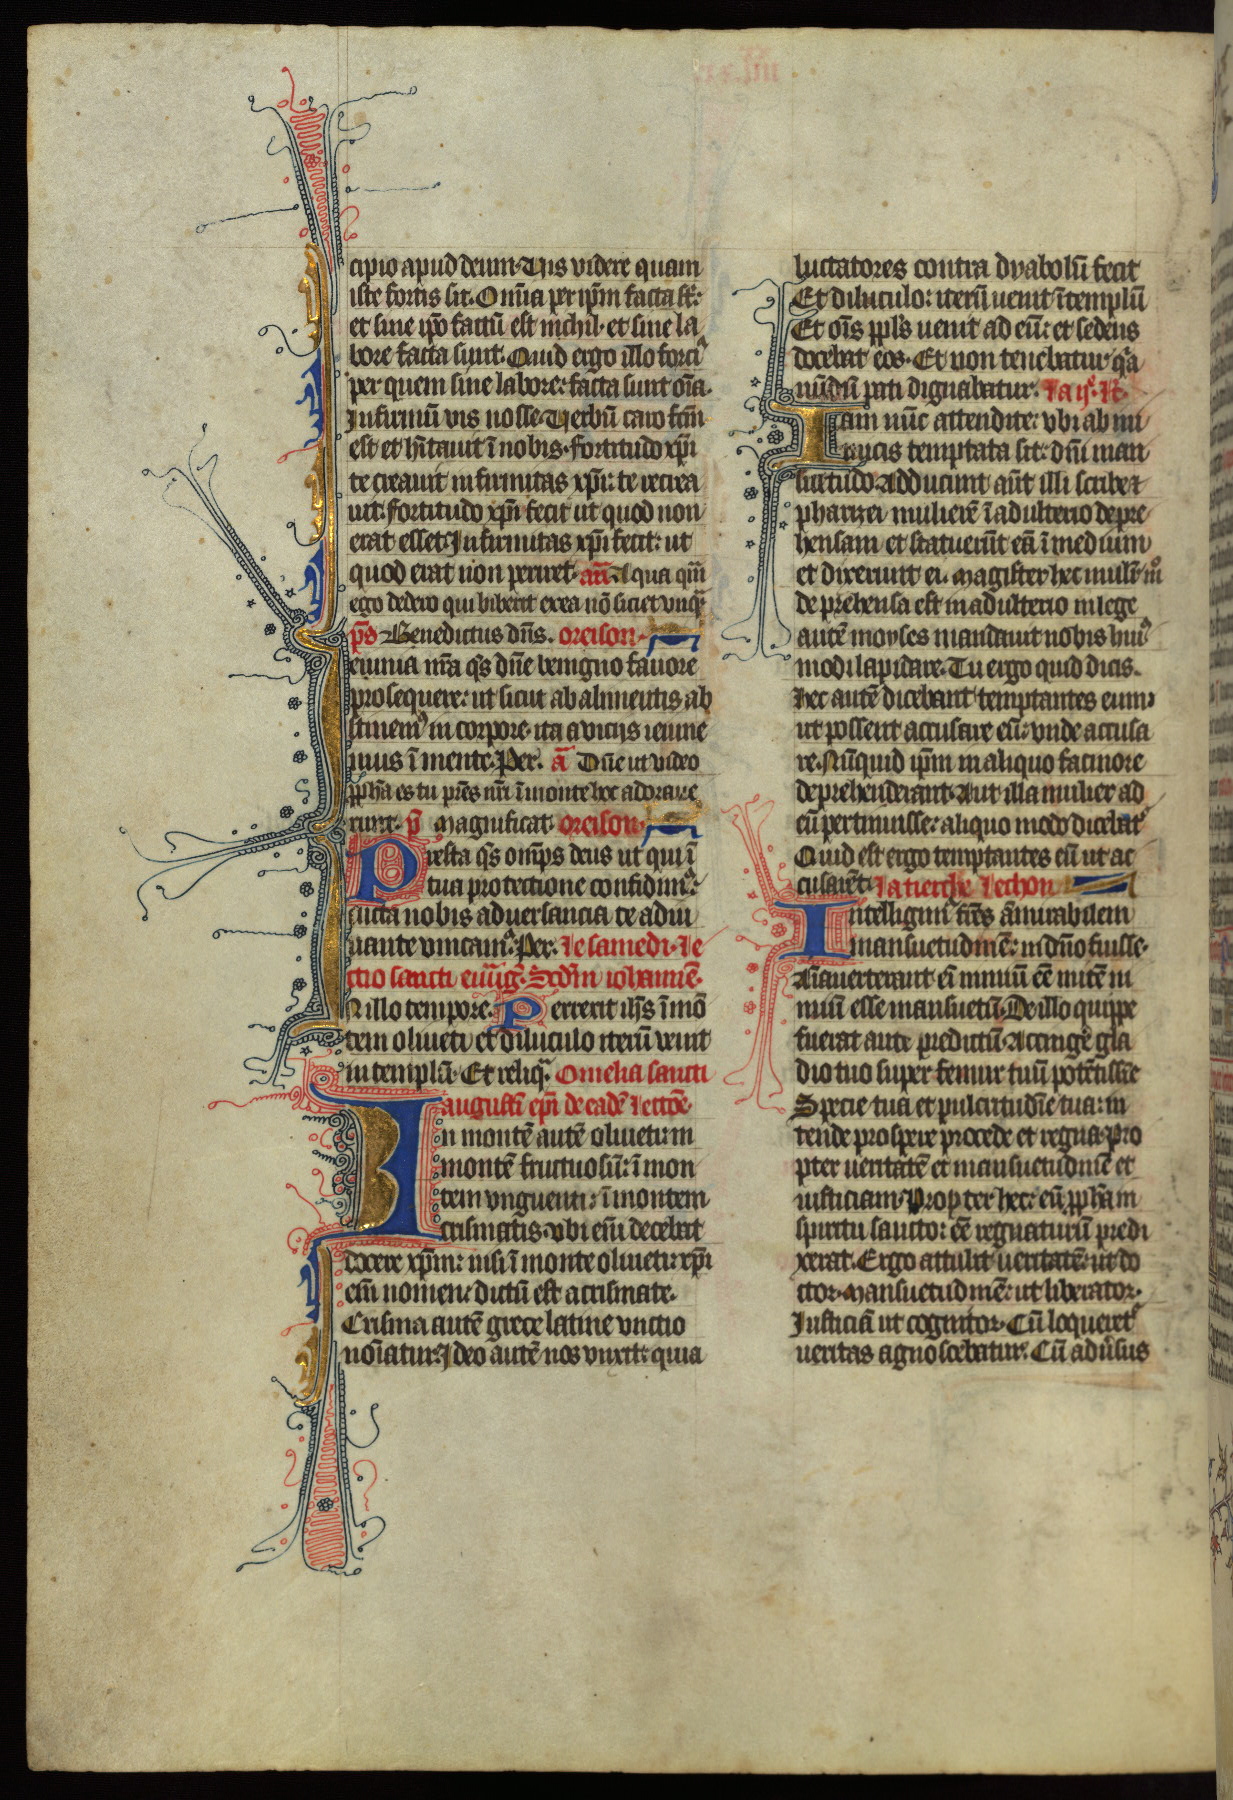 cipio apud deum. Vis videre quam
iste fortis sit. Omĩa per ip̃m facta sũt:
et sine ip̃o factũ est nichil. et sine la
bore facta sunt. Quid ergo illo forci9
per quem sine labore: facta sunt oĩa.
Infirmũ vis nosse. Verbũ caro fc̃m
est et hĩtauit ĩ nobis. fortitudo xp̃i
te creauit infirmitas xp̃i: te recrea
uit. fortitudo xp̃i fecit ut quod non
erat esset. Infirmitas xp̃i fecit: ut
quod erat non periret. añ. Aqua quã
ego dedero qui biberit ex ea nõ siciet vnq̃
p̃s Benedictus dñs. oreison.
eiunia nr̃a q̃s dñe benigno fauore
prosequere: ut sicut ab alimentis ab
stinem9 in corpore. ita a vicijs ieiune
mus ĩ mente. Per. ã Dñe ut video
pp̃ha es tu pr̃es nr̃i ĩ monte hoc adoraue
runt. p̃ Magnificat. oreison.
Presta q̃s om̃ps deus ut qui ĩ
tua protectione confidim9:
cũcta nobis aduersancia te adiu
uante vincam9. Per. Le samedi. Le
ctio sancti euuãg̃. Sc̃dm iohannẽ.
N illo tempore. Perrexit ih̃s ĩ mõ
tem oliueti et diluculo iterũ venit
in templũ. Et reliq̃. Omelia sancti
augustĩ ep̃i de eadẽ lectiõe.
In montẽ autẽ oliueti: in
montẽ fructuosũ: ĩ mon
tem vnguenti: ĩ montem
crismatis. vbi eni͂ decebat
docere xp̃m: nisi ĩ monte oliueti: xp̃i
eni͂ nomen: dictũ est a crismate.
Crisma autẽ grece latine vnctio
noĩatur. Ideo autẽ nos vnxit: quia
luctatores contra dyabolũ fecit
Et diluculo: iterũ uenit ĩ templũ
Et oĩs ppl̃s uenit ad eũ: et sedens
docebat eos. Et non tenebatur q̃a
nũdũ pati dignabatur. la ij. l̃c.
Iam nũc attendite: vbi ab ini
mycis temptata sit: dñi man
suetudo. Adducunt aũt illi scribe et
pharizei mulierẽ ĩ adulterio depre
hensam et statuerũt eã ĩ medium
et dixerunt ei. Magister hec muliẽ mõ
deprehensa est in adulterio in lege
autẽ moyses mandauit nobis hui9
modi lapidare. Tu ergo quid dicis.
Hec autẽ dicebant temptantes eum:
ut possent accusare eũ: vnde accusa
re. Nũquid ip̃m in aliquo facinore
deprehenderant. Aut illa mulier ad
eũ pertinuisse: aliquo modo dicebat̃
Quid est ergo temptantes eũ ut ac
cusarẽt. la tierche lechon
Intelligim9 fr̃es ãmirabilem
mansuetudinẽ: in dñõ fuisse.
Aĩaduerterunt eĩ nimiũ eẽ mitẽ ni
miũ esse mansuetũ. De illo quippe
fuerat ante predictũ. Accingẽ gla
dio tuo super femur tuũ potẽtissĩe
Specie tua et pulcritudĩe tua: in
tende prospere procede et regna. pro
pter ueritatẽ et mansuetudinẽ et
iusticiam. Propter hec: eũ pp̃ham
spiritu sancto: eẽ regnaturũ predi
xerat. Ergo attulit ueritatẽ: ut do
ctor. Mansuetudinẽ: ut liberator.
Iusticiã ut cognitor. Cũ loqueret̃
ueritas agnoscebatur. Cũ aduˀsus